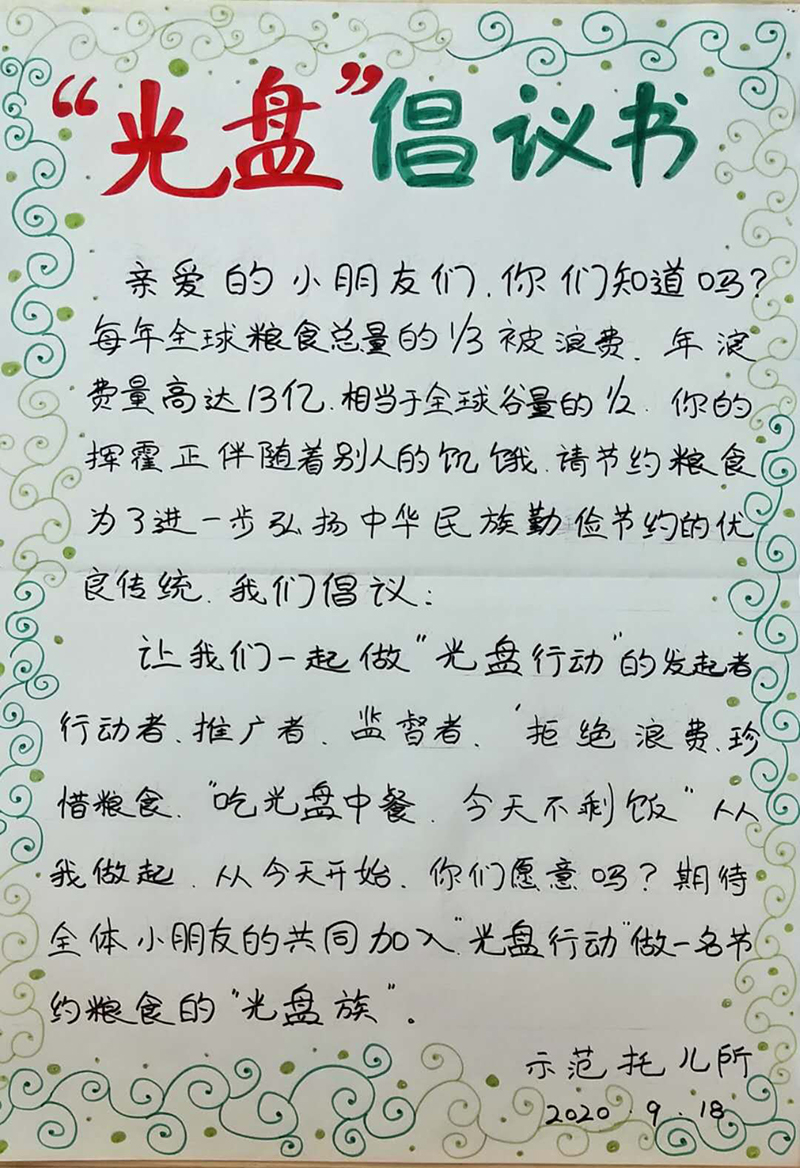 “光盘”倡议书
亲爱的小朋友们、你们知道吗?
每年全球粮食总量的1/3被浪费、年浪
费量高达13亿、相当于全球谷量的1/2、你的
挥霍正伴随着别人的饥饿、请节约粮食
为了进一步弘扬中华民族勤俭节约的优
良传统、我们倡议:
让我们一起做“光盘行动”的发起者
行动者、推广者、监督者、‘拒绝浪费、珍
惜粮食、“吃光盘中餐、今天不剩饭”从
我做起、从今天开始、你们愿意吗?期待
全体小朋友的共同加入“光盘行动”做一名节
约粮食的“光盘族”。
示范托儿所
2020.9.18